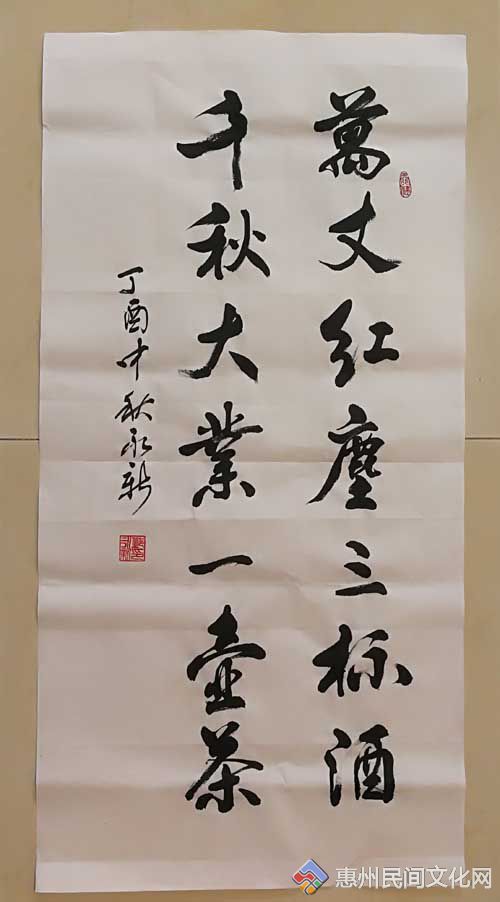 萬丈红塵三标酒
千秋大業一壺茶
丁酉中秋永新
惠州民间文化网